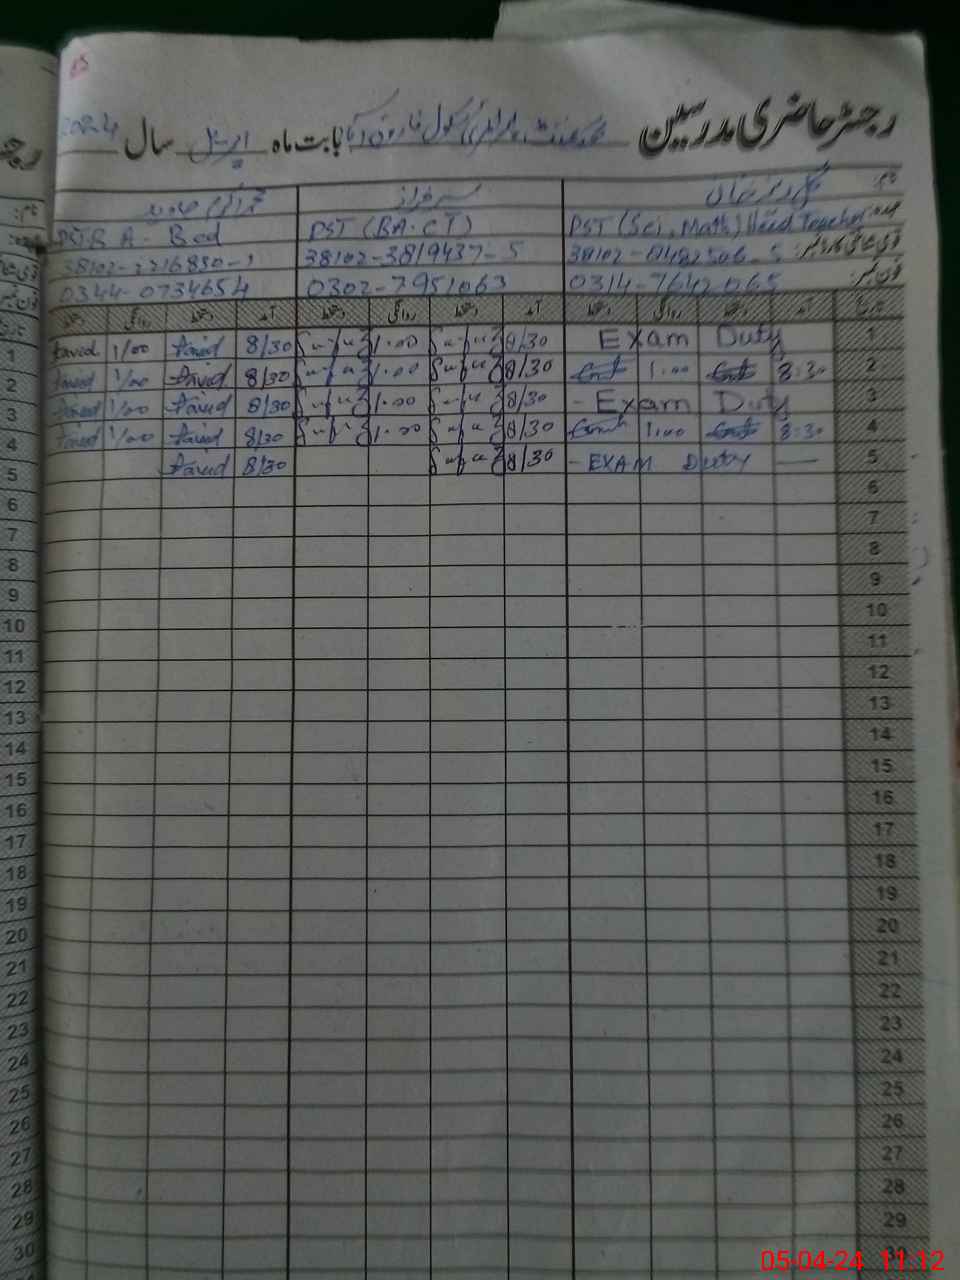 رجسٹر حاضری مدرسین گورنمنٹ پرائمری سکول بابت ماہ اپریل سال 2024
نام: گل ریز خان سرفراز
عہدہ: PST (Sci, Math) Head Teacher PST (BA.CT) PST B A. Bed
قومی شناختی کارڈ نمبر: 38102-3819437-5
فون نمبر: 0314-7642065 0302-7951063 0344-0734654
تاریخ آمد دستخط روانگی دستخط آمد دستخط روانگی دستخط آمد دستخط روانگی دستخط
1 Exam Duty 8/30 1.00 8/30 Javed 1/00 Javed
2 8:30 1:00 8/30 1.00 8/30 Javed 1/00 Javed
3 - Exam Duty 8/30 1.00 8/30 Javed 1/00 Javed
4 8:30 1:00 8/30 1.00 8/30 Javed 1/00 Javed
5 - EXAM Duty — 8/30 8/30 Javed
6
7
8
9
10
11
12
13
14
15
16
17
18
19
20
21
22
23
24
25
26
27
28
29
05-04-24 11:12